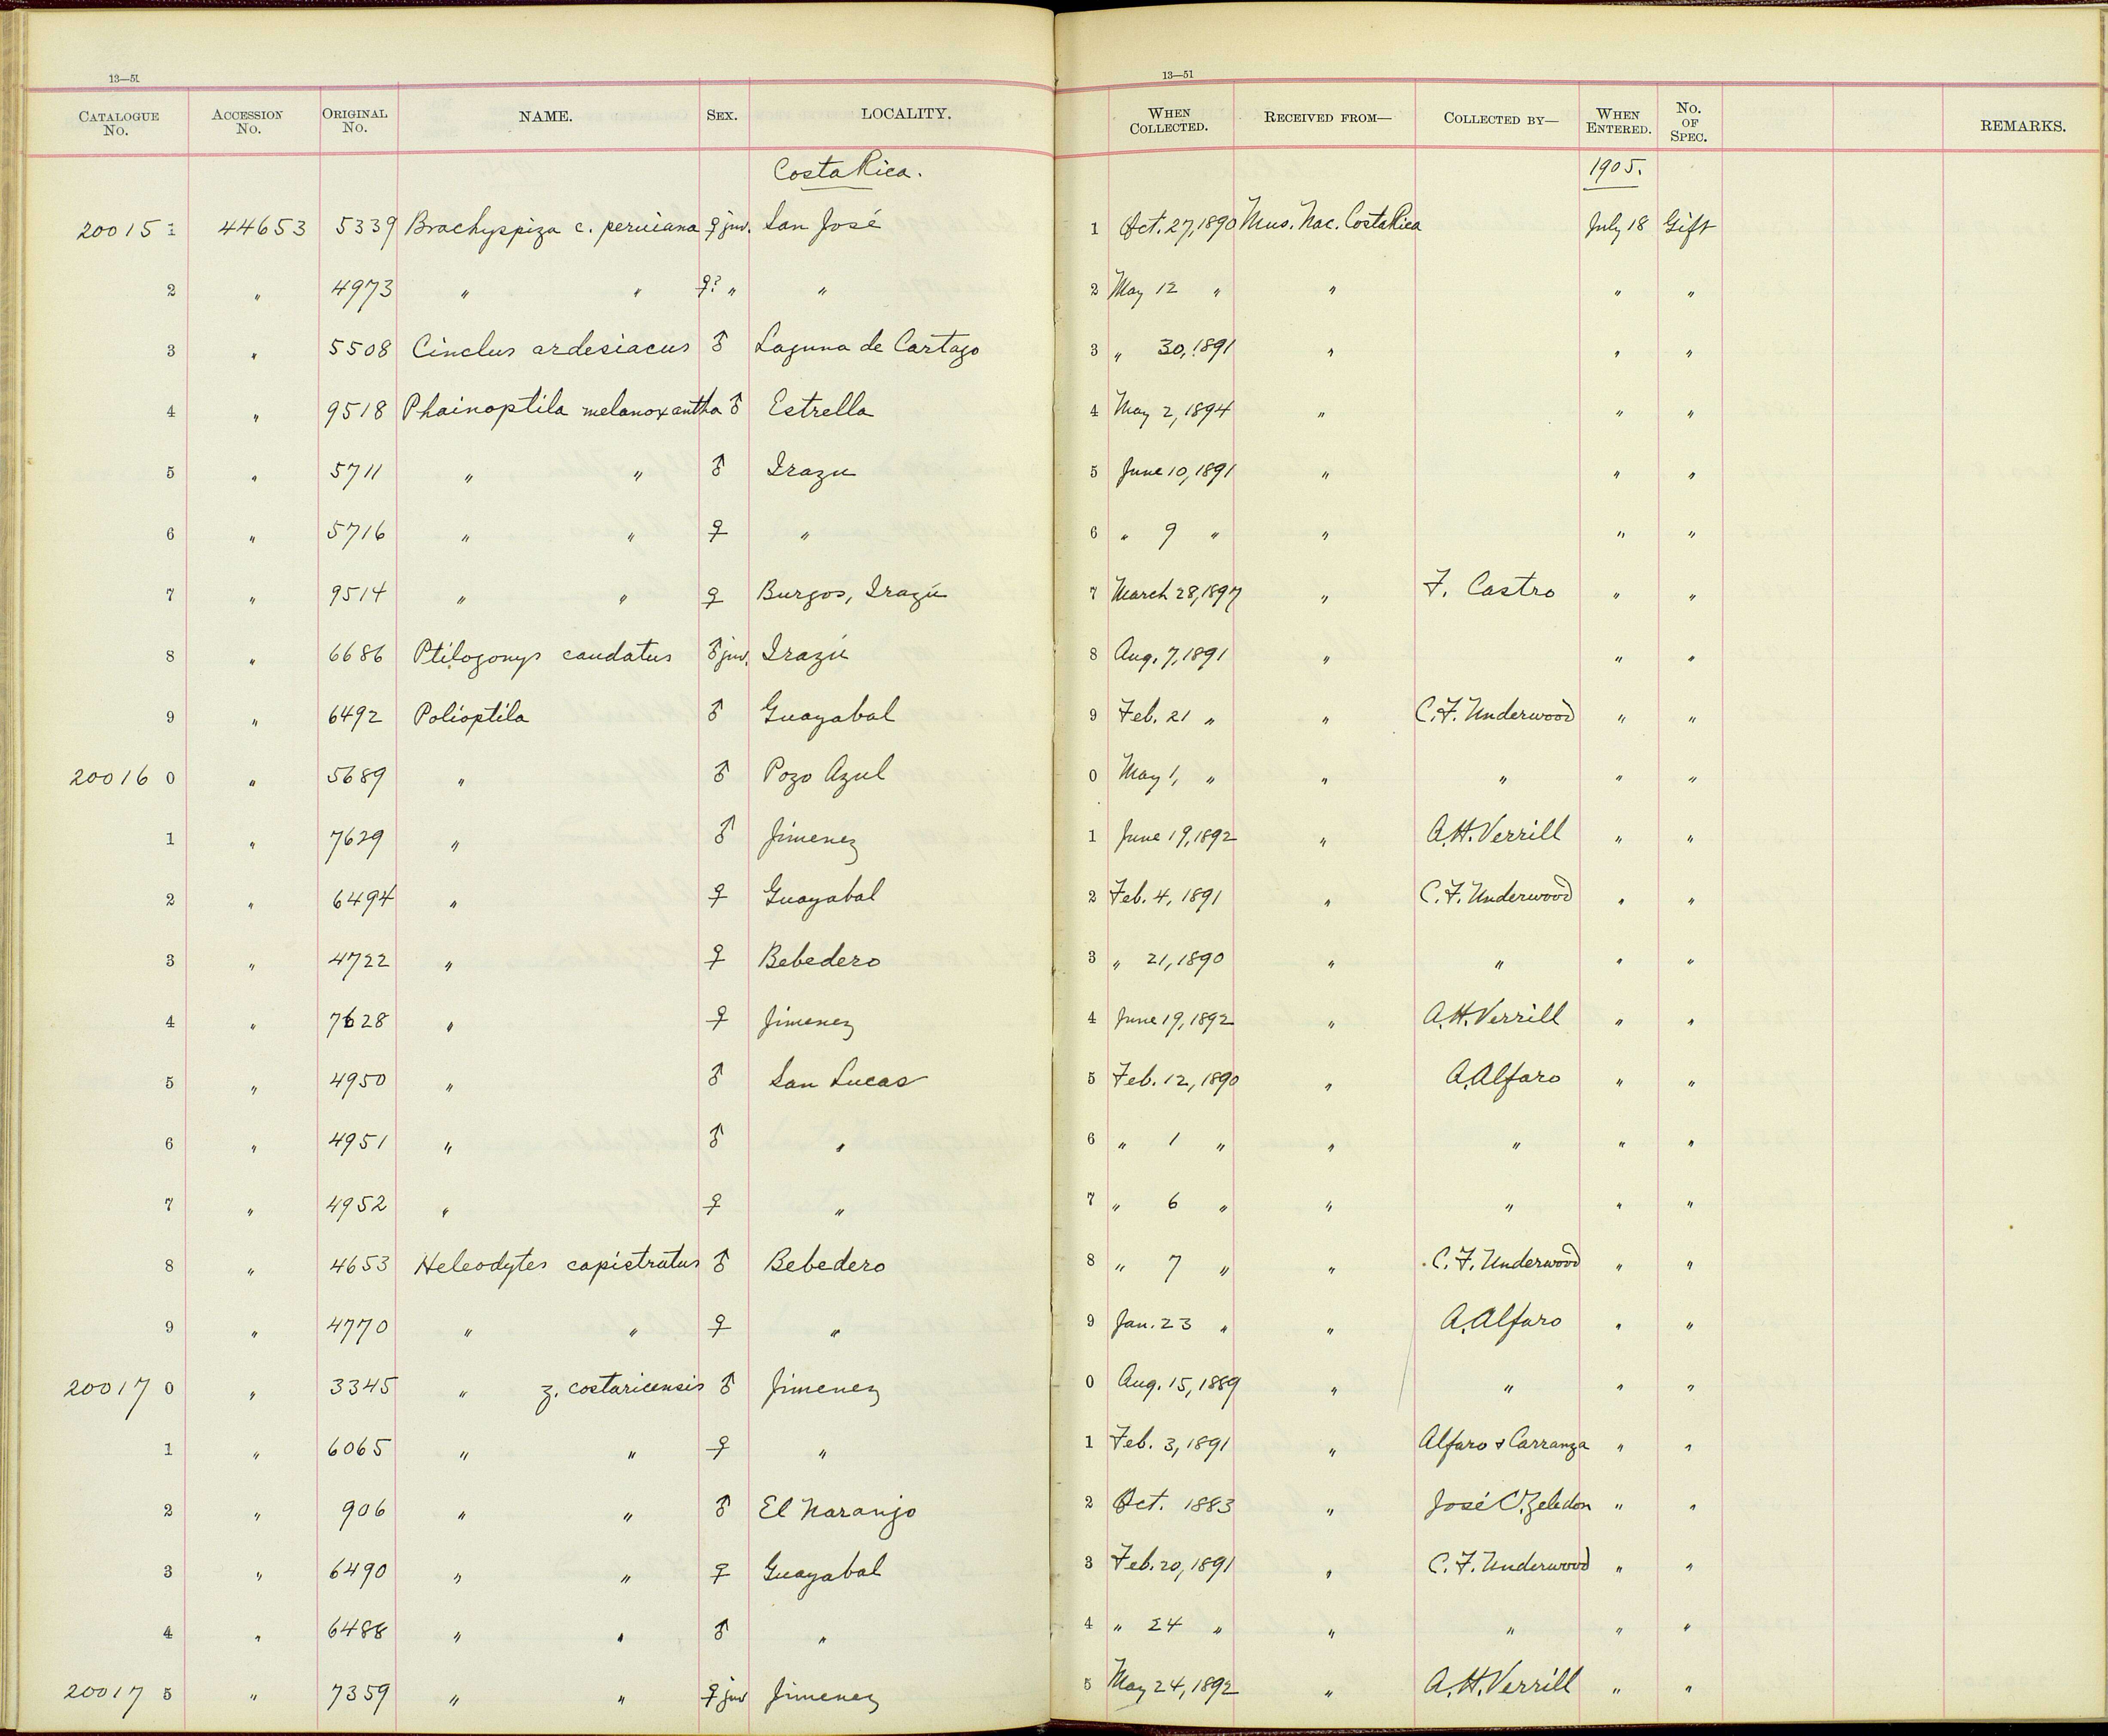 13—51
13—51
CATALOGUE No. ACCESSION No. ORIGINAL No. NAME. SEX. LOCALITY. WHEN COLLECTED. RECEIVED FROM— COLLECTED BY— WHEN ENTERED. No. OF SPEC. REMARKS.
Costa Rica. 1905.
20015 1 44653 5339 Brachyspiza c. peruiana ♀ juv. San José 1 Oct. 27, 1890 Mus. Nac. Costa Rica July 18 Gift
2 " 4973 " " ♀? " " 2 May 12 " " " "
3 " 5508 Cinclus ardesiacus ♂ Laguna de Cartago 3 " 30, 1891 " " "
4 " 9518 Phainoptila melanoxantha ♂ Estrella 4 May 2, 1894 " " "
5 " 5711 " " ♂ Irazu 5 June 10, 1891 " " "
6 " 5716 " " ♀ " 6 " 9 " " " "
7 " 9514 " " ♀ Burgos, Irazú 7 March 28, 1897 " F. Castro " "
8 " 6686 Ptilogonys caudatus ♂ juv. Irazú 8 Aug. 7, 1891 " " "
9 " 6492 Polioptila ♂ Guayabal 9 Feb. 21 " " C. F. Underwood " "
20016 0 " 5689 " ♂ Pozo Azul 0 May 1, " " " " "
1 " 7629 " ♂ Jimenez 1 June 19, 1892 " A. H. Verrill " "
2 " 6494 " ♀ Guayabal 2 Feb. 4, 1891 " C. F. Underwood " "
3 " 4722 " ♀ Bebedero 3 " 21, 1890 " " " "
4 " 7628 " ♀ Jimenez 4 June 19, 1892 " A. H. Verrill " "
5 " 4950 " ♂ San Lucas 5 Feb. 12, 1890 " A. Alfaro " "
6 " 4951 " ♂ " 6 " 1 " " " " "
7 " 4952 " ♀ " 7 " 6 " " " " "
8 " 4653 Heleodytes capistratus ♂ Bebedero 8 " 7 " " C. F. Underwood " "
9 " 4770 " " ♀ " 9 Jan. 23 " " A. Alfaro " "
20017 0 " 3345 " z. costaricensis ♂ Jimenez 0 Aug. 15, 1889 " " " "
1 " 6065 " " ♀ " 1 Feb. 3, 1891 " Alfaro & Carranza " "
2 " 906 " " ♂ El Naranjo 2 Oct. 1883 " José C. Zeledon " "
3 " 6490 " " ♀ Guayabal 3 Feb. 20, 1891 " C. F. Underwood " "
4 " 6488 " " ♂ " 4 " 24 " " " " "
20017 5 " 7359 " " ♀ juv Jimenez 5 May 24, 1892 " A. H. Verrill " "